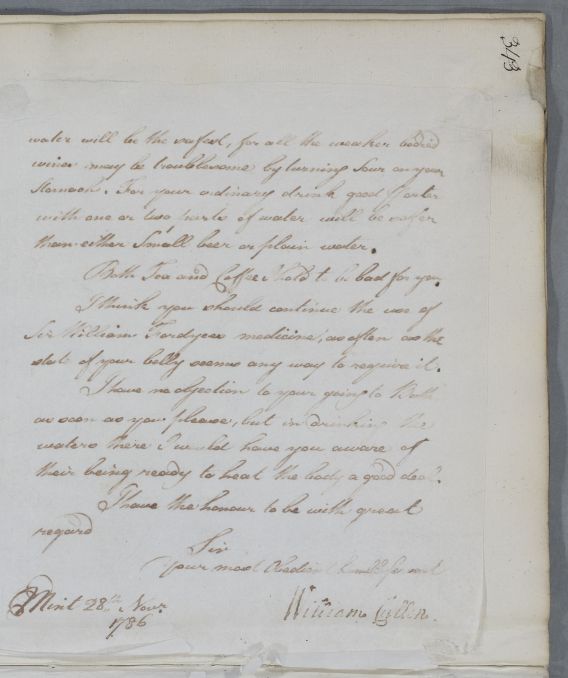 343
water will be the safest, for all the weaker bodied
wines may be troublesome by turning Sour on your
Stomach. For your ordinary drink good Porter
with one or two parts of water will be safer
than either Small beer or plain water.
Both Tea and Coffee I hold to be bad for you
I think you should continue the use of
Sir William Fordyces medicine, as often as the
state of your belly seems any way to require it.
I have no objection to your going to Bath
as soon as you please, but in drinking the
waters there I would have you aware of
their being ready to heat the body a good deal.
I have the honour to be with great
regard
Sir
Your most Obedient humble Servant
William Cullen.
Mint 28th Novr.
1786